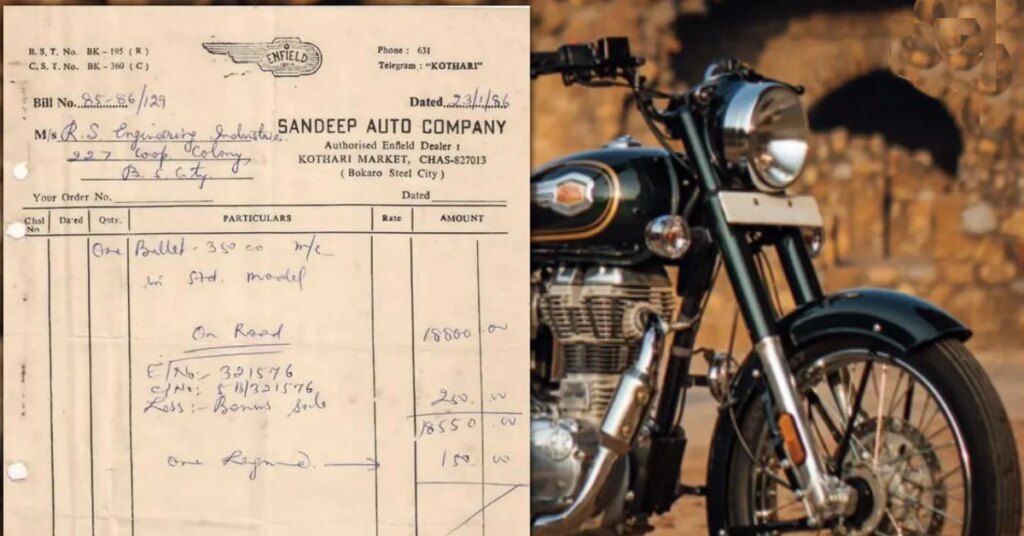 B. S. T. No. BK-195 ( R )
C. S. T. No. BK-360 ( C )
ENFIELD
Phone : 631
Telegram : "KOTHARI"
Bill No. 85-86/129
Dated 23/1/86
M/s R.S Engineering Industries
SANDEEP AUTO COMPANY
Authorised Enfield Dealer :
227 Coop. Colony
KOTHARI MARKET, CHAS-827013
B. S. City.
( Bokaro Steel City )
Your Order No.
Dated
Chal No Dated Qnty. PARTICULARS Rate AMOUNT
One Bullet - 350 cc m/c
in Std. model
On Road 18800.00
E/No:- 321576
C/No:- 5B/321576
Less:- Bonus Sale 250.00
18550.00
one 150.00